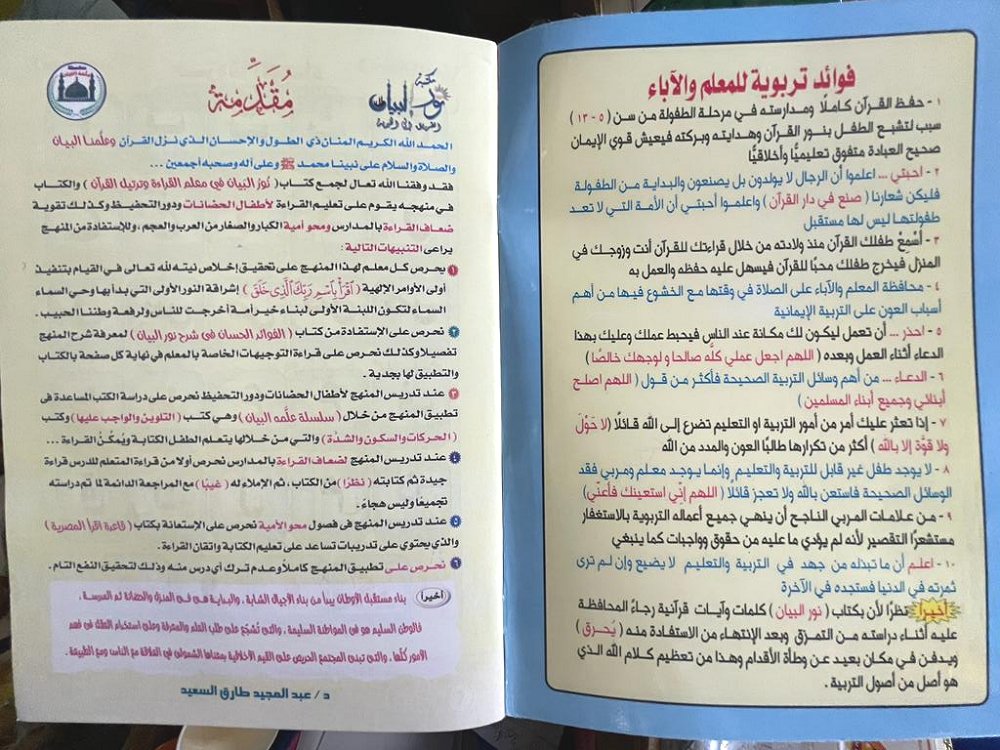 فوائد تربوية للمعلم والآباء
١ - حفظ القرآن كاملًا ومدارسته في مرحلة الطفولة من سن ( ٥ - ١٣ )
سبب لتشبع الطفل بنور القرآن وهدايته وبركته فيعيش قوي الإيمان
صحيح العبادة متفوق تعليميًّا وأخلاقيًّا
٢ - أحبتي ... اعلموا أن الرجال لا يولدون بل يصنعون والبداية من الطفولة
فليكن شعارنا ( صنع في دار القرآن ) واعلموا أحبتي أن الأمة التي لا تعد
طفولتها ليس لها مستقبل
٣ - أَسْمِعْ طفلك القرآن منذ ولادته من خلال قراءتك للقرآن أنت وزوجك في
المنزل فيخرج طفلك محبًا للقرآن فيسهل عليه حفظه والعمل به
٤ - محافظة المعلم والآباء على الصلاة في وقتها مع الخشوع فيها من أهم
أسباب العون على التربية الإيمانية
٥ - احذر ... أن تعمل ليكون لك مكانة عند الناس فيحبط عملك وعليك بهذا
الدعاء أثناء العمل وبعده ( اللهم اجعل عملي كلَّه صالحا و لوجهك خالصًا )
٦ - الدعاء ... من أهم وسائل التربية الصحيحة فأكثر من قول ( اللهم اصلح
أبنائي وجميع أبناء المسلمين )
٧ - إذا تعثر عليك أمر من أمور التربية او التعليم تضرع إلى الله قائلًا (لا حَوْلَ
ولا قوَّة إلا بالله ) أكثر من تكرارها طالبًا العون والمدد من الله
٨ - لا يوجد طفل غير قابل للتربية والتعليم وإنما يوجد معلم ومربي فقد
الوسائل الصحيحة فاستعن بالله ولا تعجز قائلًا ( اللهم إنّي استعينك فأعنّي)
٩ - من علامات المربي الناجح أن ينهي جميع أعماله التربوية بالاستغفار
مستشعرًا التقصير لأنه لم يؤدي ما عليه من حقوق وواجبات كما ينبغي
١٠ - اعلم أن ما تبذله من جهد في التربية والتعليم لا يضيع وإن لم ترى
ثمرته في الدنيا فستجده في الآخرة
أخيرًا نظرًا لأن بكتاب ( نور البيان ) كلمات وآيات قرآنية رجاءً المحافظة
عليه أثناء دراسته من التمزق وبعد الإنتهاء من الاستفادة منه ( يُحرق )
ويدفن في مكان بعيد عن وطأة الأقدام وهذا من تعظيم كلام الله الذي
هو أصل من أصول التربية .
مكتبة
نور البيان
مُقَدِّمَة
الحمد لله الكريم المنان ذي الطول والإحسان الذي نزل القرآن وعلَّمنا البيان
والصلاة والسلام على نبينا محمد ﷺ وعلى آله وصحبه أجمعين ...
فقد وفقنا الله تعالى لجمع كتاب ( نُورُ البيان في معلم القراءة وترتيل القرآن ) والكتاب
في منهجه يقوم على تعليم القراءة لأطفال الحضانات ودور التحفيظ وكذلك تقوية
ضعاف القراءة بالمدارس ومحو أمية الكبار والصغار من العرب والعجم . وللإستفادة من المنهج
يراعى التنبيهات التالية :
١ يحرص كل معلم لهذا المنهج على تحقيق إخلاص نيته لله تعالى في القيام بتنفيذ
أولى الأوامر الإلهية ( ٱقْرَأْ بِٱسْمِ رَبِّكَ ٱلَّذِى خَلَقَ ) إشراقة النور الأولى التي بدأ بها وحي السماء
السماء لتكون اللبنة الأولى لبناء خير أمة أخرجت للناس ولرفعة وطننا الحبيب .
٢ نحرص على الإستفادة من كتاب ( الفوائد الحسان في شرح نور البيان ) لمعرفة شرح المنهج
تفصيلا وكذلك نحرص على قراءة التوجيهات الخاصة بالمعلم في نهاية كل صفحة بالكتاب
والتطبيق لها بجدية .
٣ عند تدريس المنهج لأطفال الحضانات ودور التحفيظ نحرص على دراسة الكتب المساعدة في
تطبيق المنهج من خلال ( سلسلة علَّمه البيان ) وهي كتب ( التلوين والواجب عليها ) وكتب
( الحركات والسكون والشدَّة ) والتي من خلالها يتعلم الطفل الكتابة ويُمكَّنُ القراءة ...
٤ عند تدريس المنهج لضعاف القراءة بالمدارس نحرص أولا من قراءة المتعلم للدرس قراءة
جيدة ثم كتابته ( نظرًا ) من الكتاب ، ثم الإملاء له ( غيبًا ) مع المراجعة الدائمة لما تم دراسته
تجميعًا وليس هجاءً .
٥ عند تدريس المنهج في فصول محو الأمية نحرص على الإستعانة بكتاب ( قاعدة اقرأ المصرية )
والذي يحتوي على تدريبات تساعد على تعليم الكتابة واتقان القراءة .
٦ نحرص على تطبيق المنهج كاملًا وعدم ترك أي درس منه وذلك لتحقيق النفع التام .
أخيرًا بناء مستقبل الأوطان يبدأ من بناء الأجيال الشابة . والبداية هي في المنزل والحضانة ثم المدرسة .
فالوطن السليم هو في المواطنة السليمة . والتي تُشجّع على طلب العلم والمعرفة وعلى استخدام العقل في فهم
الأمور كلّها . والتي تبني المجتمع الحريص على القيم الأخلاقية بمعناها الشمولي في العلاقة مع الناس ومع الطبيعة .
د / عبد المجيد طارق السعيد